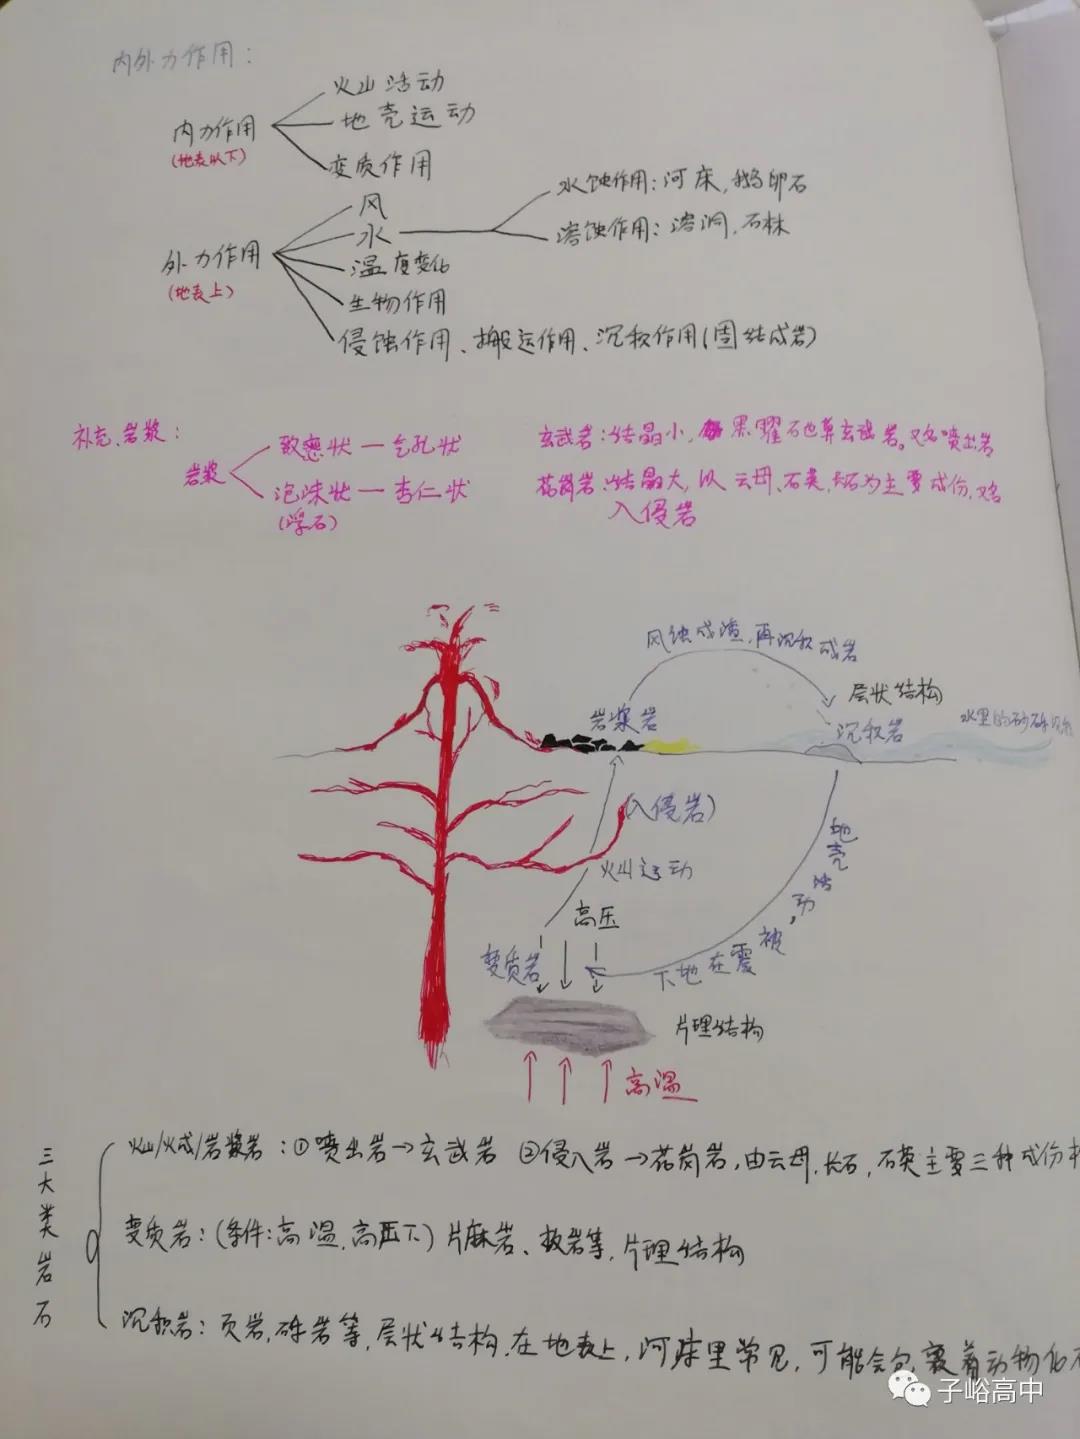 内外力作用：
火山活动
地壳运动
内力作用
(地表以下)
变质作用
水蚀作用：河床，鹅卵石
风
水
溶蚀作用：溶洞，石林
外力作用
(地表上)
温度变化
生物作用
侵蚀作用、搬运作用、沉积作用(固结成岩)
补充、岩浆：
岩浆
致密状—气孔状
泡沫状—杏仁状
(浮石)
玄武岩：结晶小，黑曜石也算玄武岩。又名喷出岩
花岗岩：结晶大，以云母、石英、长石为主要成份，又名
入侵岩
风蚀成渣，再沉积成岩
层状结构
岩浆岩
沉积岩
水里的砂砾沉积
(入侵岩)
地壳活动，被震在地下
火山运动
高压
变质岩
片理结构
高温
三大类岩石
火山/火成/岩浆岩：①喷出岩→玄武岩 ②侵入岩→花岗岩，由云母，长石，石英主要三种成份
变质岩：(条件：高温，高压下)片麻岩、板岩等，片理结构
沉积岩：页岩，砾岩等，层状结构，在地表上，河床里常见，可能会包裹着动物化石
子峪高中